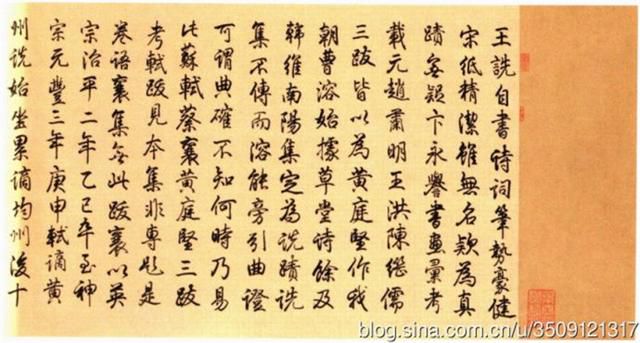 王詵自書詩詞筆勢豪健
宋紙精潔雖無名欵為真
蹟無疑卞永譽書畫彙考
載元趙肅明王洪陳繼儒
三跋皆以為黃庭堅作我
朝曹溶始據草堂詩餘及
韓維南陽集定為詵蹟詵
集不傳而溶能旁引曲證
可謂典確不知何時乃易
此蘇軾蔡襄黃庭堅三跋
考軾跋見本集非專題是
卷語襄集無此跋襄以英
宗治平二年乙巳卒至神
宗元豐三年庚申軾謫黃
州詵始坐累謫均州後十
blog.sina.com.cn/u/3509121317